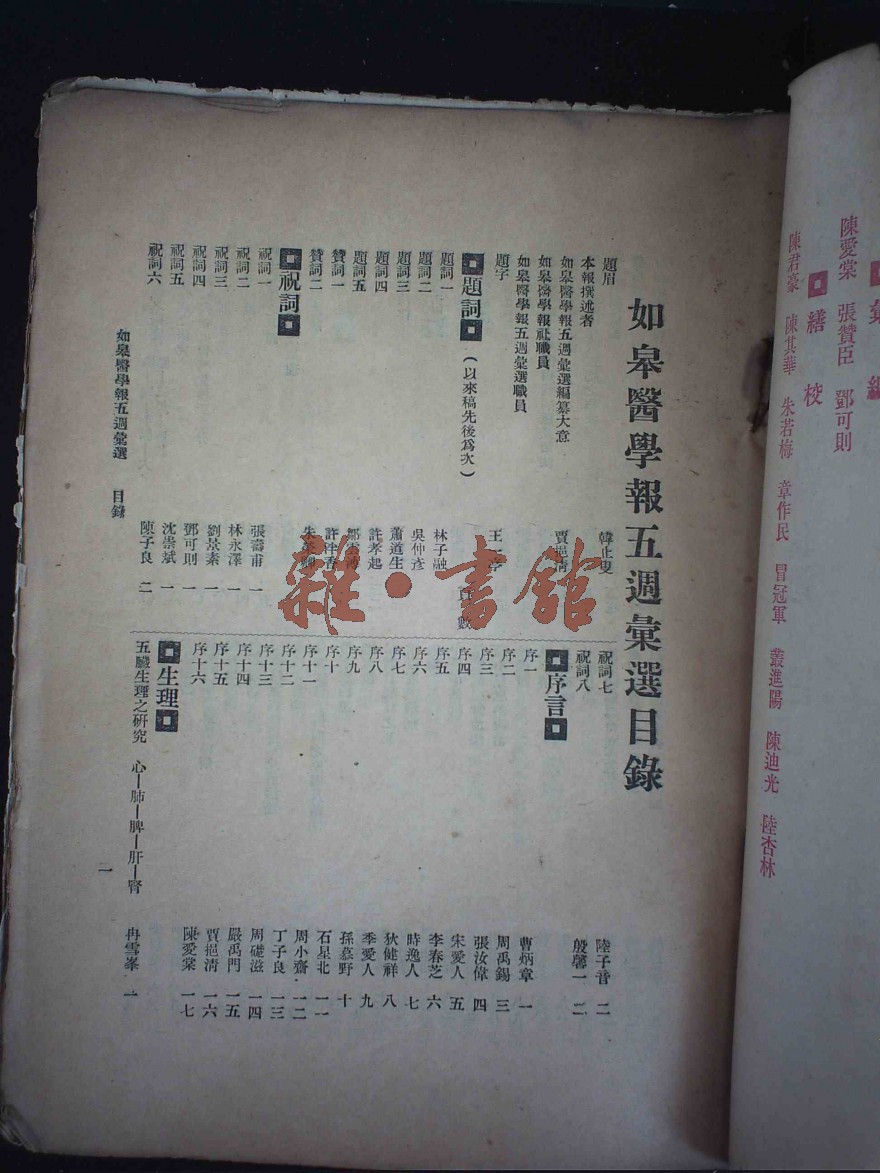 彙編
陳愛棠 張贊臣 鄧可則
繕校
陳君豪 陳其華 朱若梅 章作民 冒冠軍 叢進陽 陳迪光 陸杏林
如皋醫學報五週彙選目錄
題眉 韓止叟
本報撰述者
如皋醫學報五週彙選編纂大意 賈挹清
如皋醫學報社職員
如皋醫學報五週彙選職員
題字
題詞（以來稿先後為次） 頁數
題詞一 林子融
題詞二 吳仲彥
題詞三 蕭道生
題詞四 許孝起
題詞五
贊詞一 許梓香
贊詞二
祝詞
祝詞一 張壽甫 一
祝詞二 林永澤 一
祝詞三 劉景素 一
祝詞四 鄧可則 一
祝詞五 沈嵩斌 一
祝詞六 陳子良 二
如皋醫學報五週彙選 目錄
祝詞七 陸子音 二
祝詞八 殷馨一 二
序言
序一 曹炳章 一
序二 周禹錫 三
序三 張汝偉 四
序四 宋愛人 五
序五 李春芝 六
序六 時逸人 七
序七 狄健祥 八
序八 季愛人 九
序九 孫慕野 十
序十 石星北 一一
序十一 周小齋 一二
序十二 丁子良 一三
序十三 周礎滋 一四
序十四 嚴禹門 一五
序十五 賈挹清 一六
序十六 陳愛棠 一七
生理
五臟生理之研究 心—肺—脾—肝—腎 冉雪峯 一
一
雜·書館